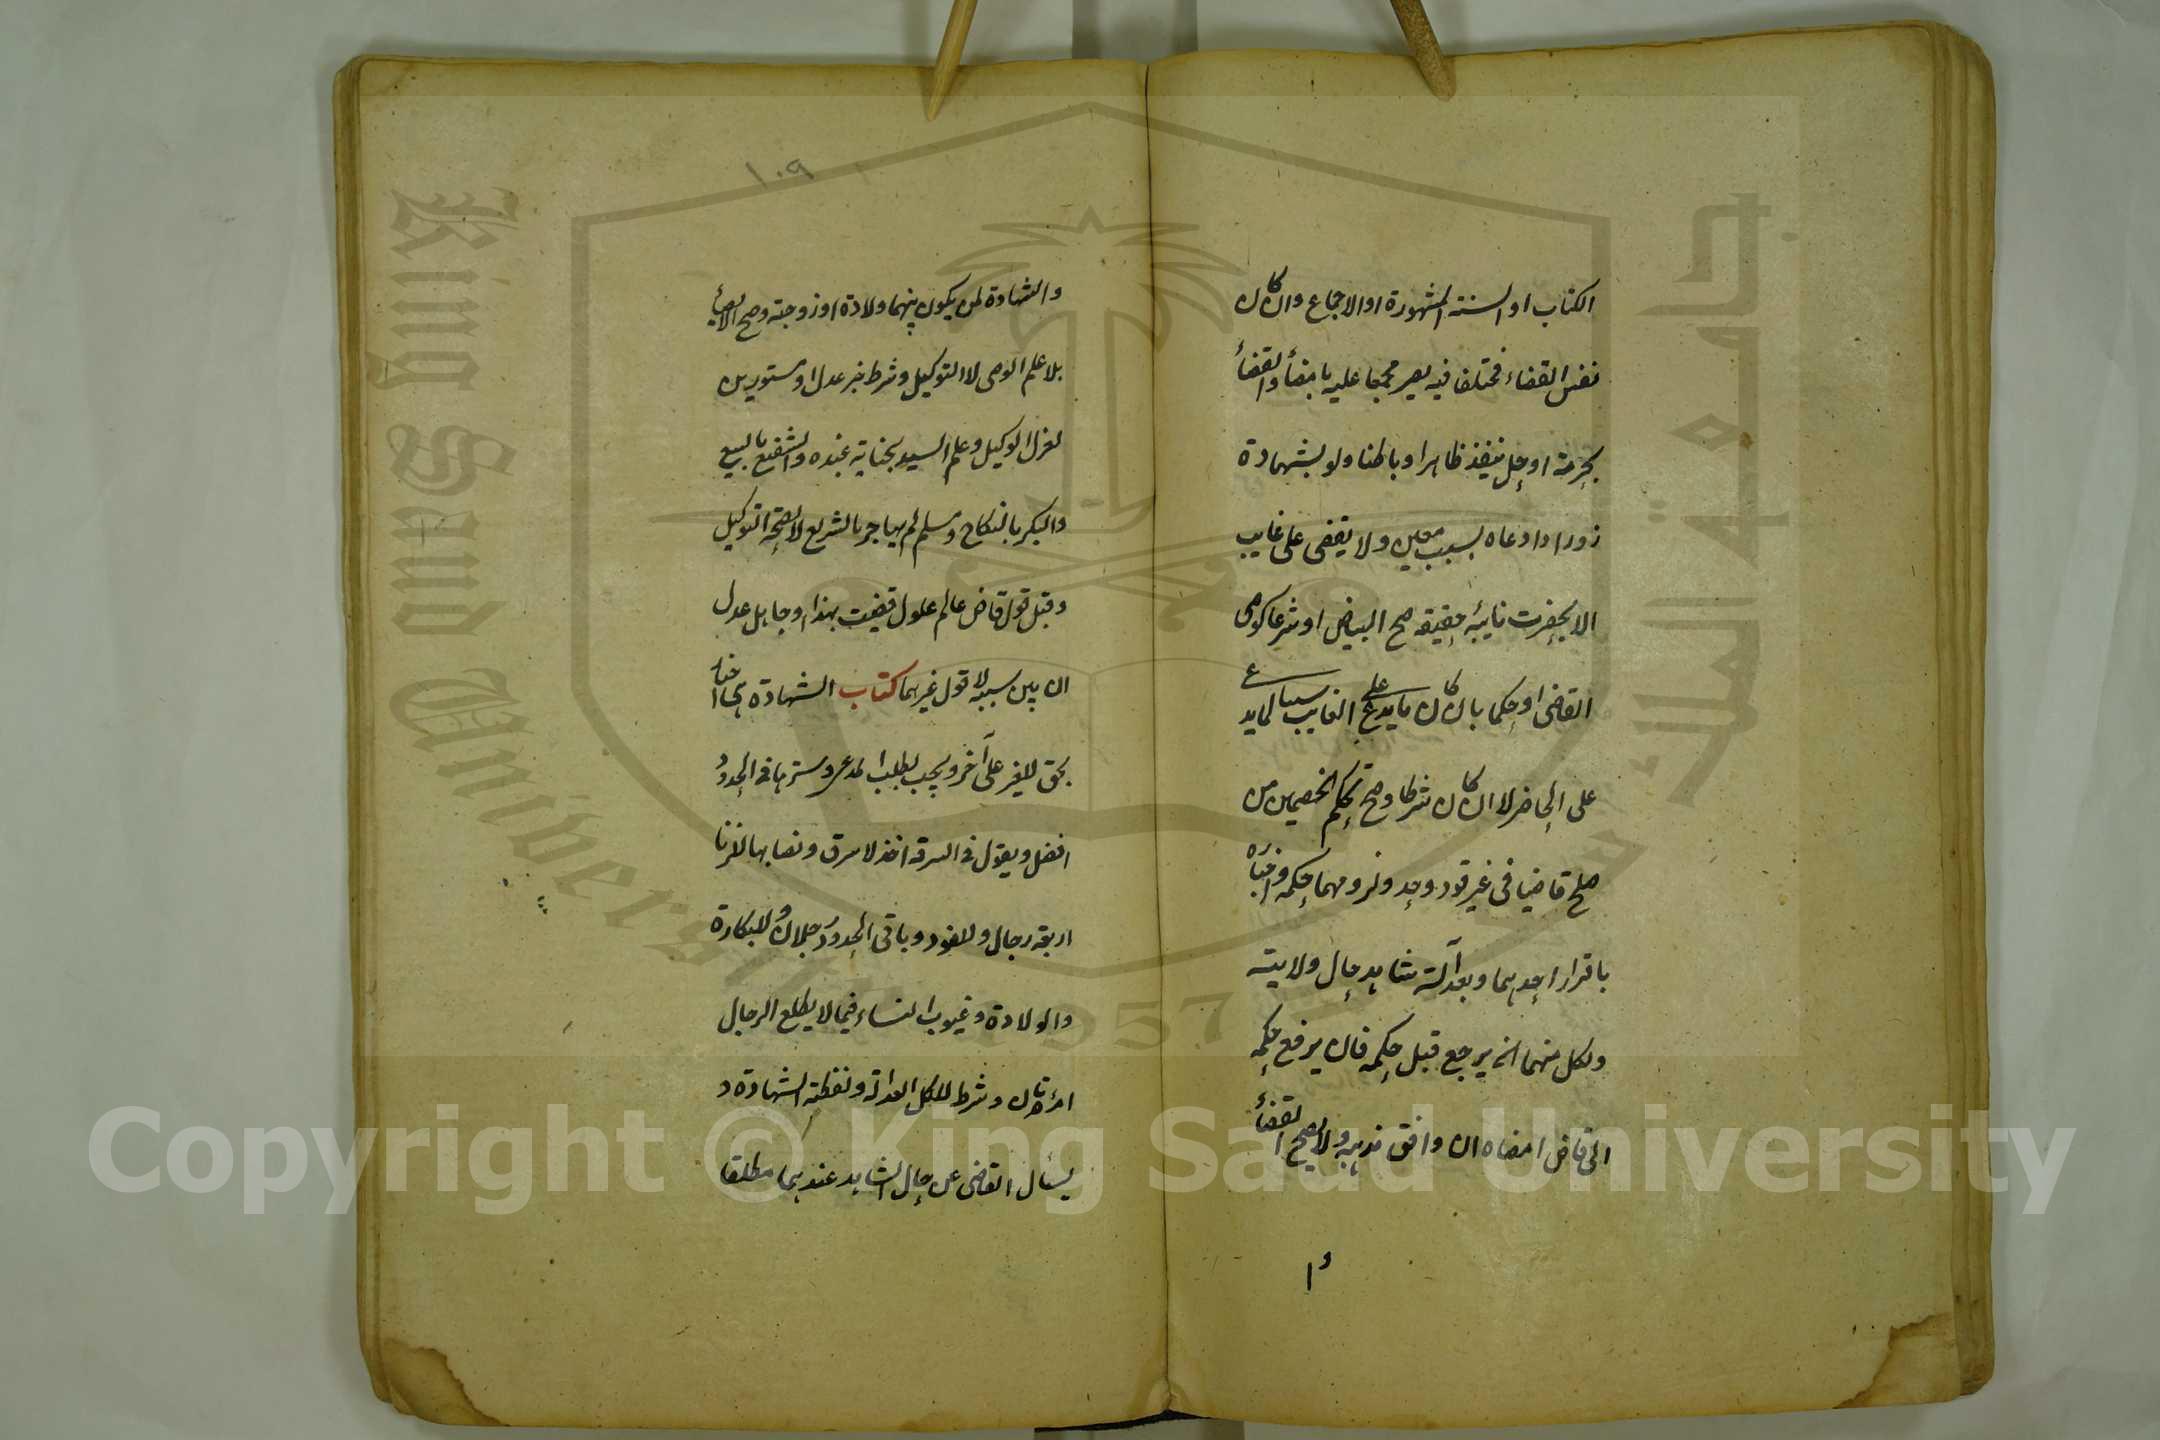 الكتاب او السنة المشهورة او الاجماع وان كان
نفس القضاء مختلفا فيه يصير مجمعا عليه بامضأ والقضأ
بحرمة او حل ينفذ ظاهرا وباطنا ولو بشهادة
زور اذا دعاه بسبب معين ولا يقضى على غايب
الا بحضرت نايبه حقيقة صح البياض او شرعا كوصى
القاضى او حكما بان كان ما يدعى على الغايب سببا لما يدع
على الحاضر لا ان كان شرطا وصح تحكيم الخصمين من
صلح قاضيا فى غير قود وحد ولزومهما حكمه واخباره
باقرار احدهما وبعدالة شاهد حال ولايته
ولكل منهما ان يرجع قبل حكمه فان يرفع حكمه
الى قاض امضاه ان وافق مذهبه ولا يصح القضأ
١٠٩
والشهادة لمن يكون بينهما ولادة او زوجته وصح الايصأ
بلا علم الوصى لا التوكيل وشرط خبر عدل او مستورين
لعزل الوكيل وعلم السيد بجناية عبده والشفيع بالبيع
والبكر بالنكاح ومسلم لم يهاجر بالشريع لا لصحة التوكيل
وقبل قول قاض عالم عدل قضيت بهذا وجاهل عدل
ان بين سببه لا قول غيرهما كتاب الشهادة هى اخبار
بحق للغير على آخر ويجب بطلب المدعى وسترها فى الحدود
افضل ويقول فى السرقة اخذ لا سرق ونصابها للزنا
اربعة رجال وللقود وباقى الحدود رجلان وللبكارة
والولادة وعيوب النساء فيما لا يطلع الرجال
امرأة وشرط للكل العدالة ولفظة الشهادة و
يسأل القاضى عن حال الشاهد عندهما مطلقا
Copyright © King Saud University
King Saud University
جامعة الملك سعود
1957